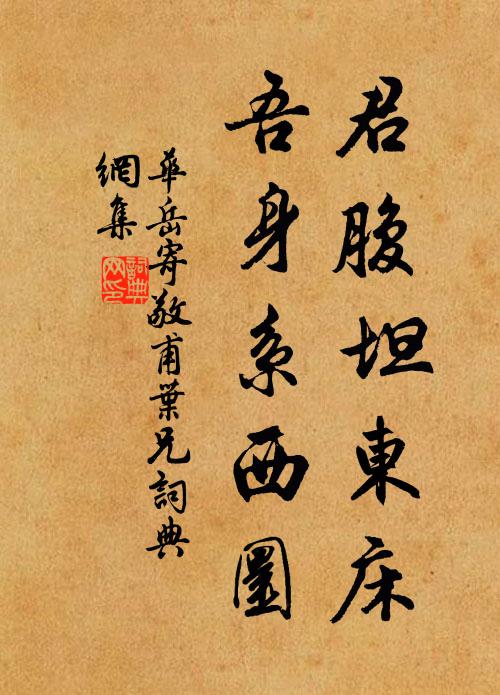 君腹坦東床
吾身系西
華岳寄敬甫葉兄詞典
網集
詞典
网印